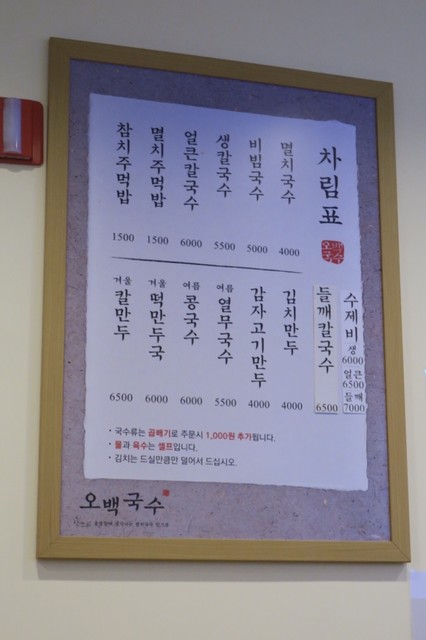 차림표
오백국수
멸치국수 4000
비빔국수 5000
생칼국수 5500
얼큰칼국수 6000
멸치주먹밥 1500
참치주먹밥 1500
수제비 생 6000 얼큰 6500 들깨 7000
들깨칼국수 6500
김치만두 4000
감자고기만두 4000
여름 열무국수 5500
여름 콩국수 6000
겨울 떡만두국 6000
겨울 칼만두 6500
• 국수류는 곱빼기로 주문시 1,000원 추가됩니다.
• 물과 육수는 셀프입니다.
• 김치는 드실만큼만 덜어서 드십시오.
오백국수